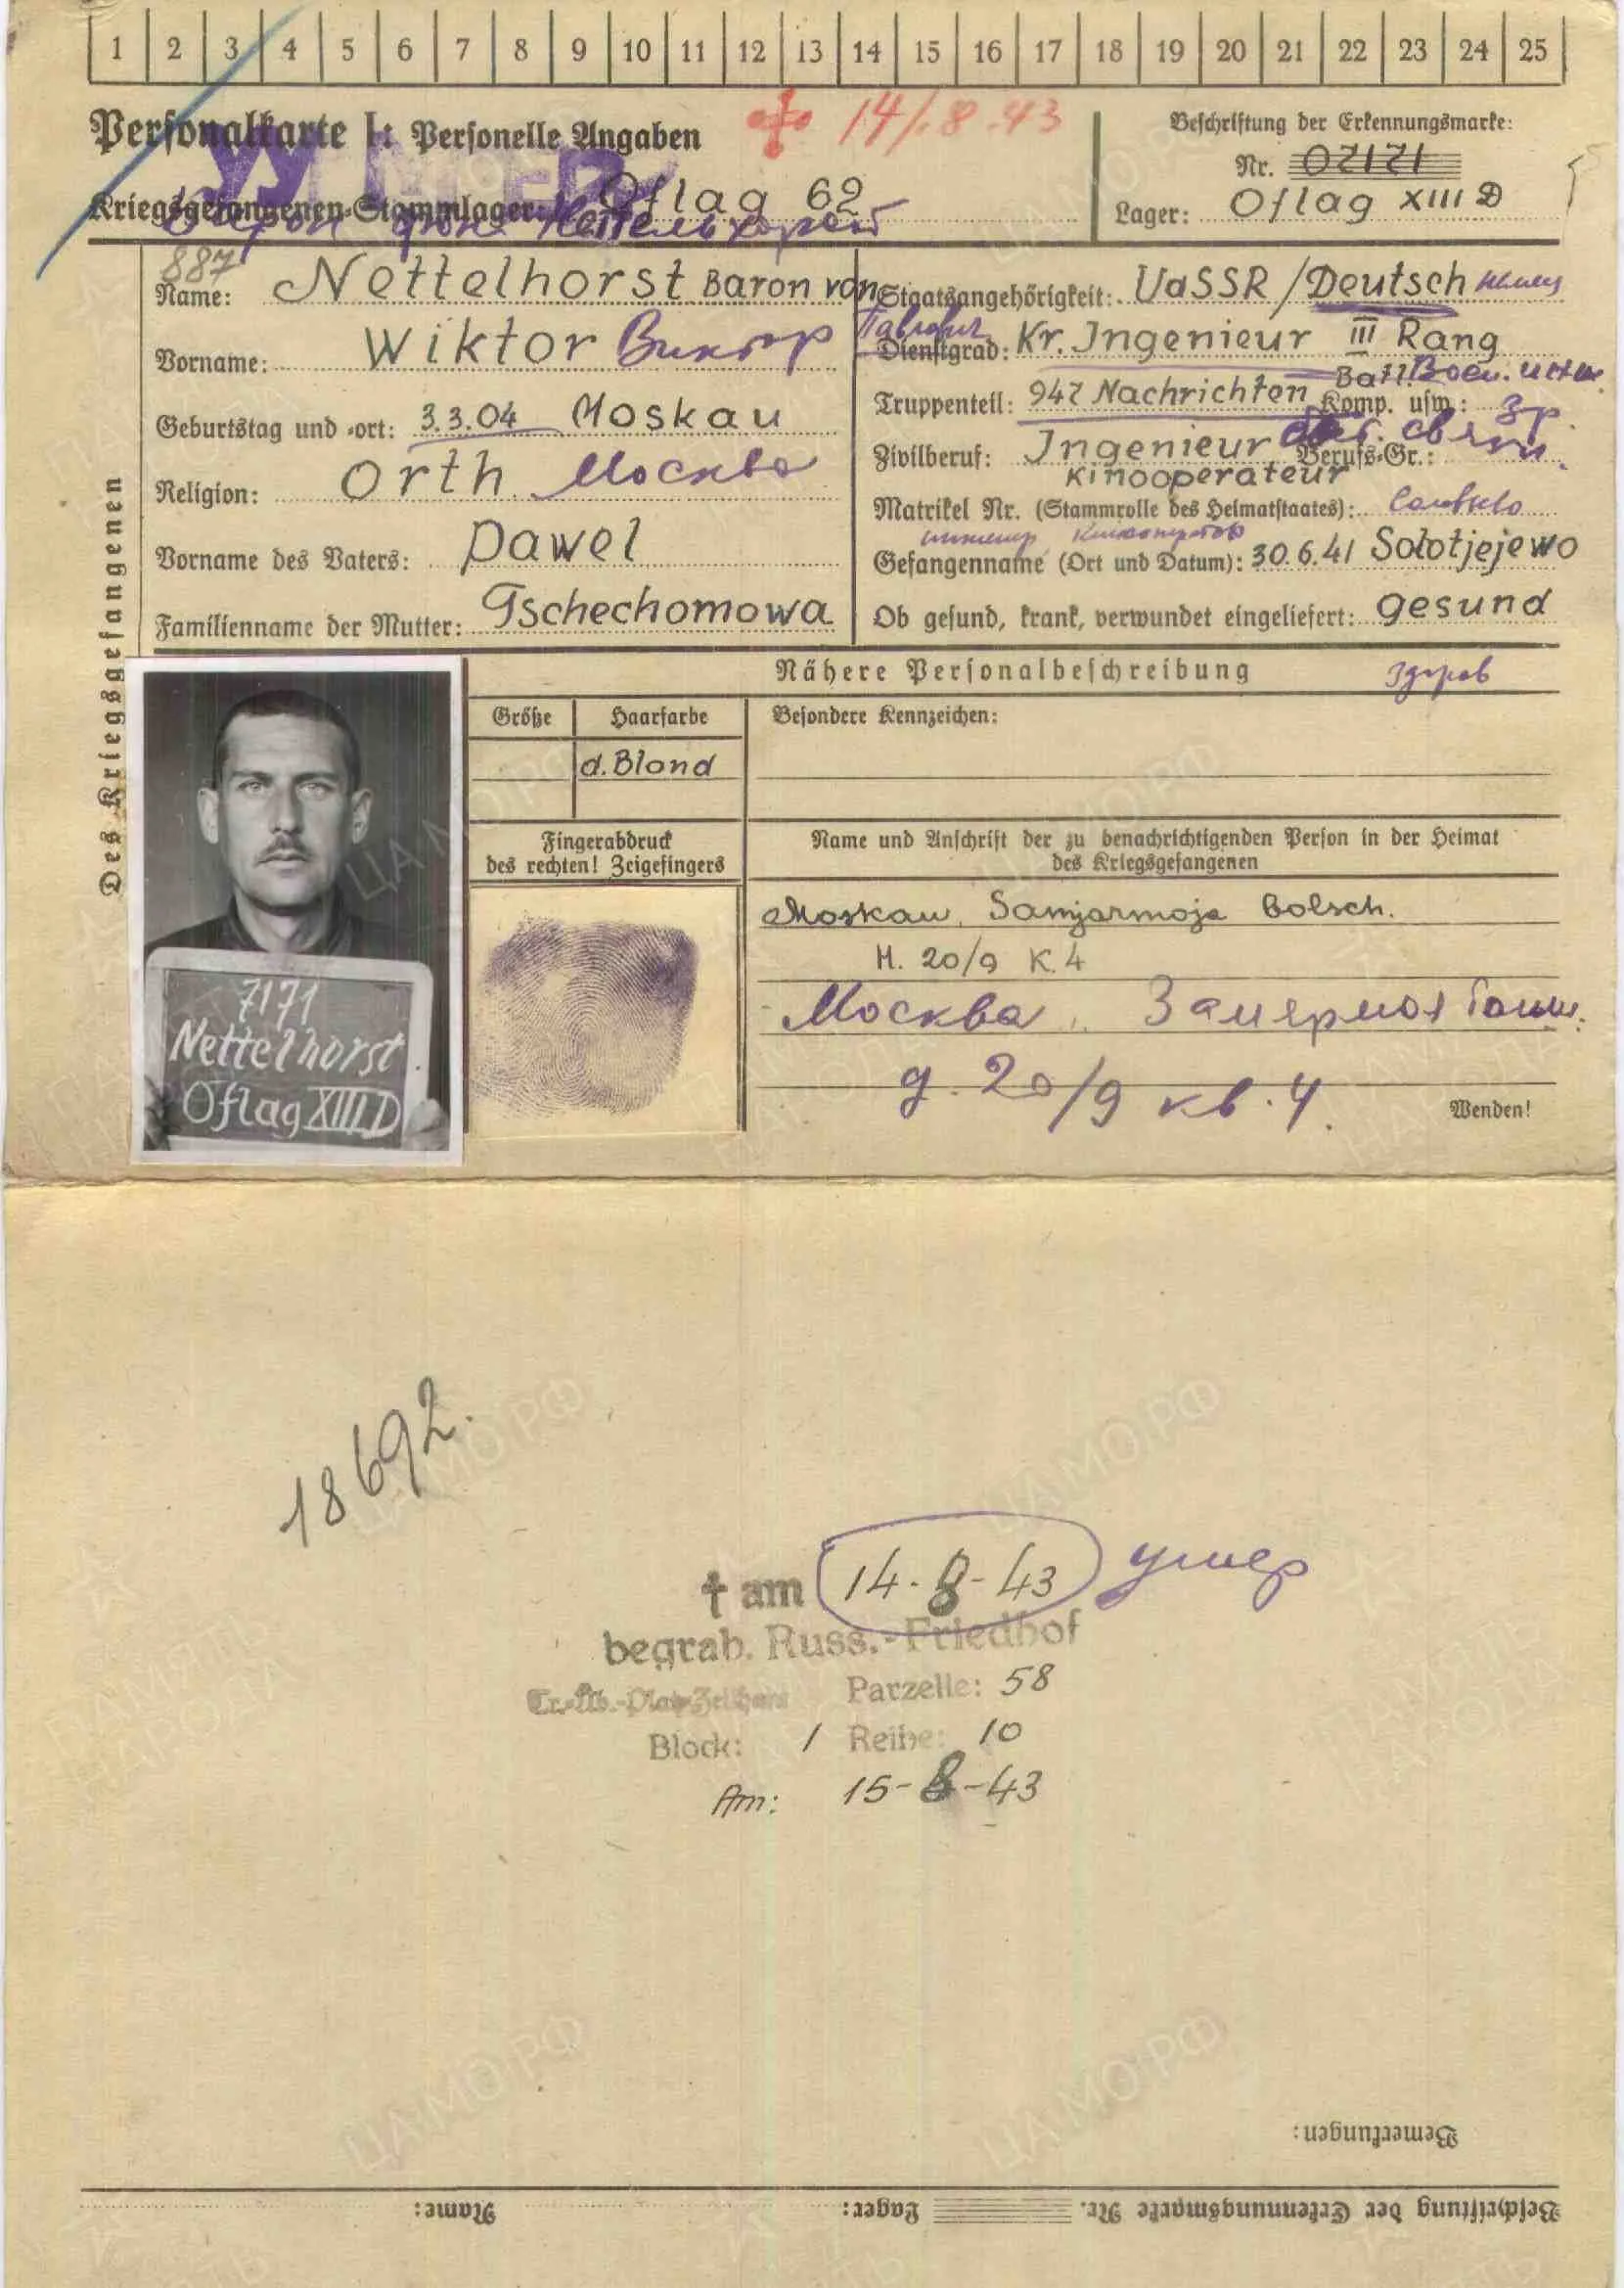 1 2 3 4 5 6 7 8 9 10 11 12 13 14 15 16 17 18 19 20 21 22 23 24 25
Personalkarte I: Personelle Angaben
14/.8.43
Beschriftung der Erkennungsmarke:
Nr. 07171
Kriegsgefangenen-Stammlager: Oflag 62
Lager: Oflag XIII D
Барон фон Неттельхорст
887
Des Kriegsgefangenen
Name: Nettelhorst Baron von
Vorname: Wiktor Виктор
Geburtstag und -ort: 3.3.04 Moskau
Religion: Orth. Москва
Vorname des Vaters: Pawel
Familienname der Mutter: Tschechomowa
Staatsangehörigkeit: UdSSR / Deutsch немец
Павлович
Dienstgrad: Kr. Ingenieur III Rang
Truppenteil: 947 Nachrichten Batl. Воен. инж.
Komp. usw.: 3 р.
Zivilberuf: Ingenieur Berufs-Gr.: связи
Kinooperateur
Matrikel Nr. (Stammrolle des Heimatstaates):
инженер
Gefangenname (Ort und Datum): 30.6.41 Solotjejewo
Ob gesund, krank, verwundet eingeliefert: gesund
Nähere Personalbeschreibung здоров
Größe Haarfarbe
d. Blond
Besondere Kennzeichen:
Fingerabdruck
des rechten! Zeigefingers
Name und Anschrift der zu benachrichtigenden Person in der Heimat
des Kriegsgefangenen
Moskau, Samjarmoja Bolsch.
H. 20/9 K. 4
Москва
д. 20/9 кв. 4.
Wenden!
7171
Nettelhorst
Oflag XIII D
18692.
† am 14-8-43 умер
begrab. Russ.-Friedhof
Parzelle: 58
Block: 1 Reihe: 10
Am: 15-8-43
Bemerkungen:
Beschriftung der Erkennungsmarke Nr. Lager: Name: